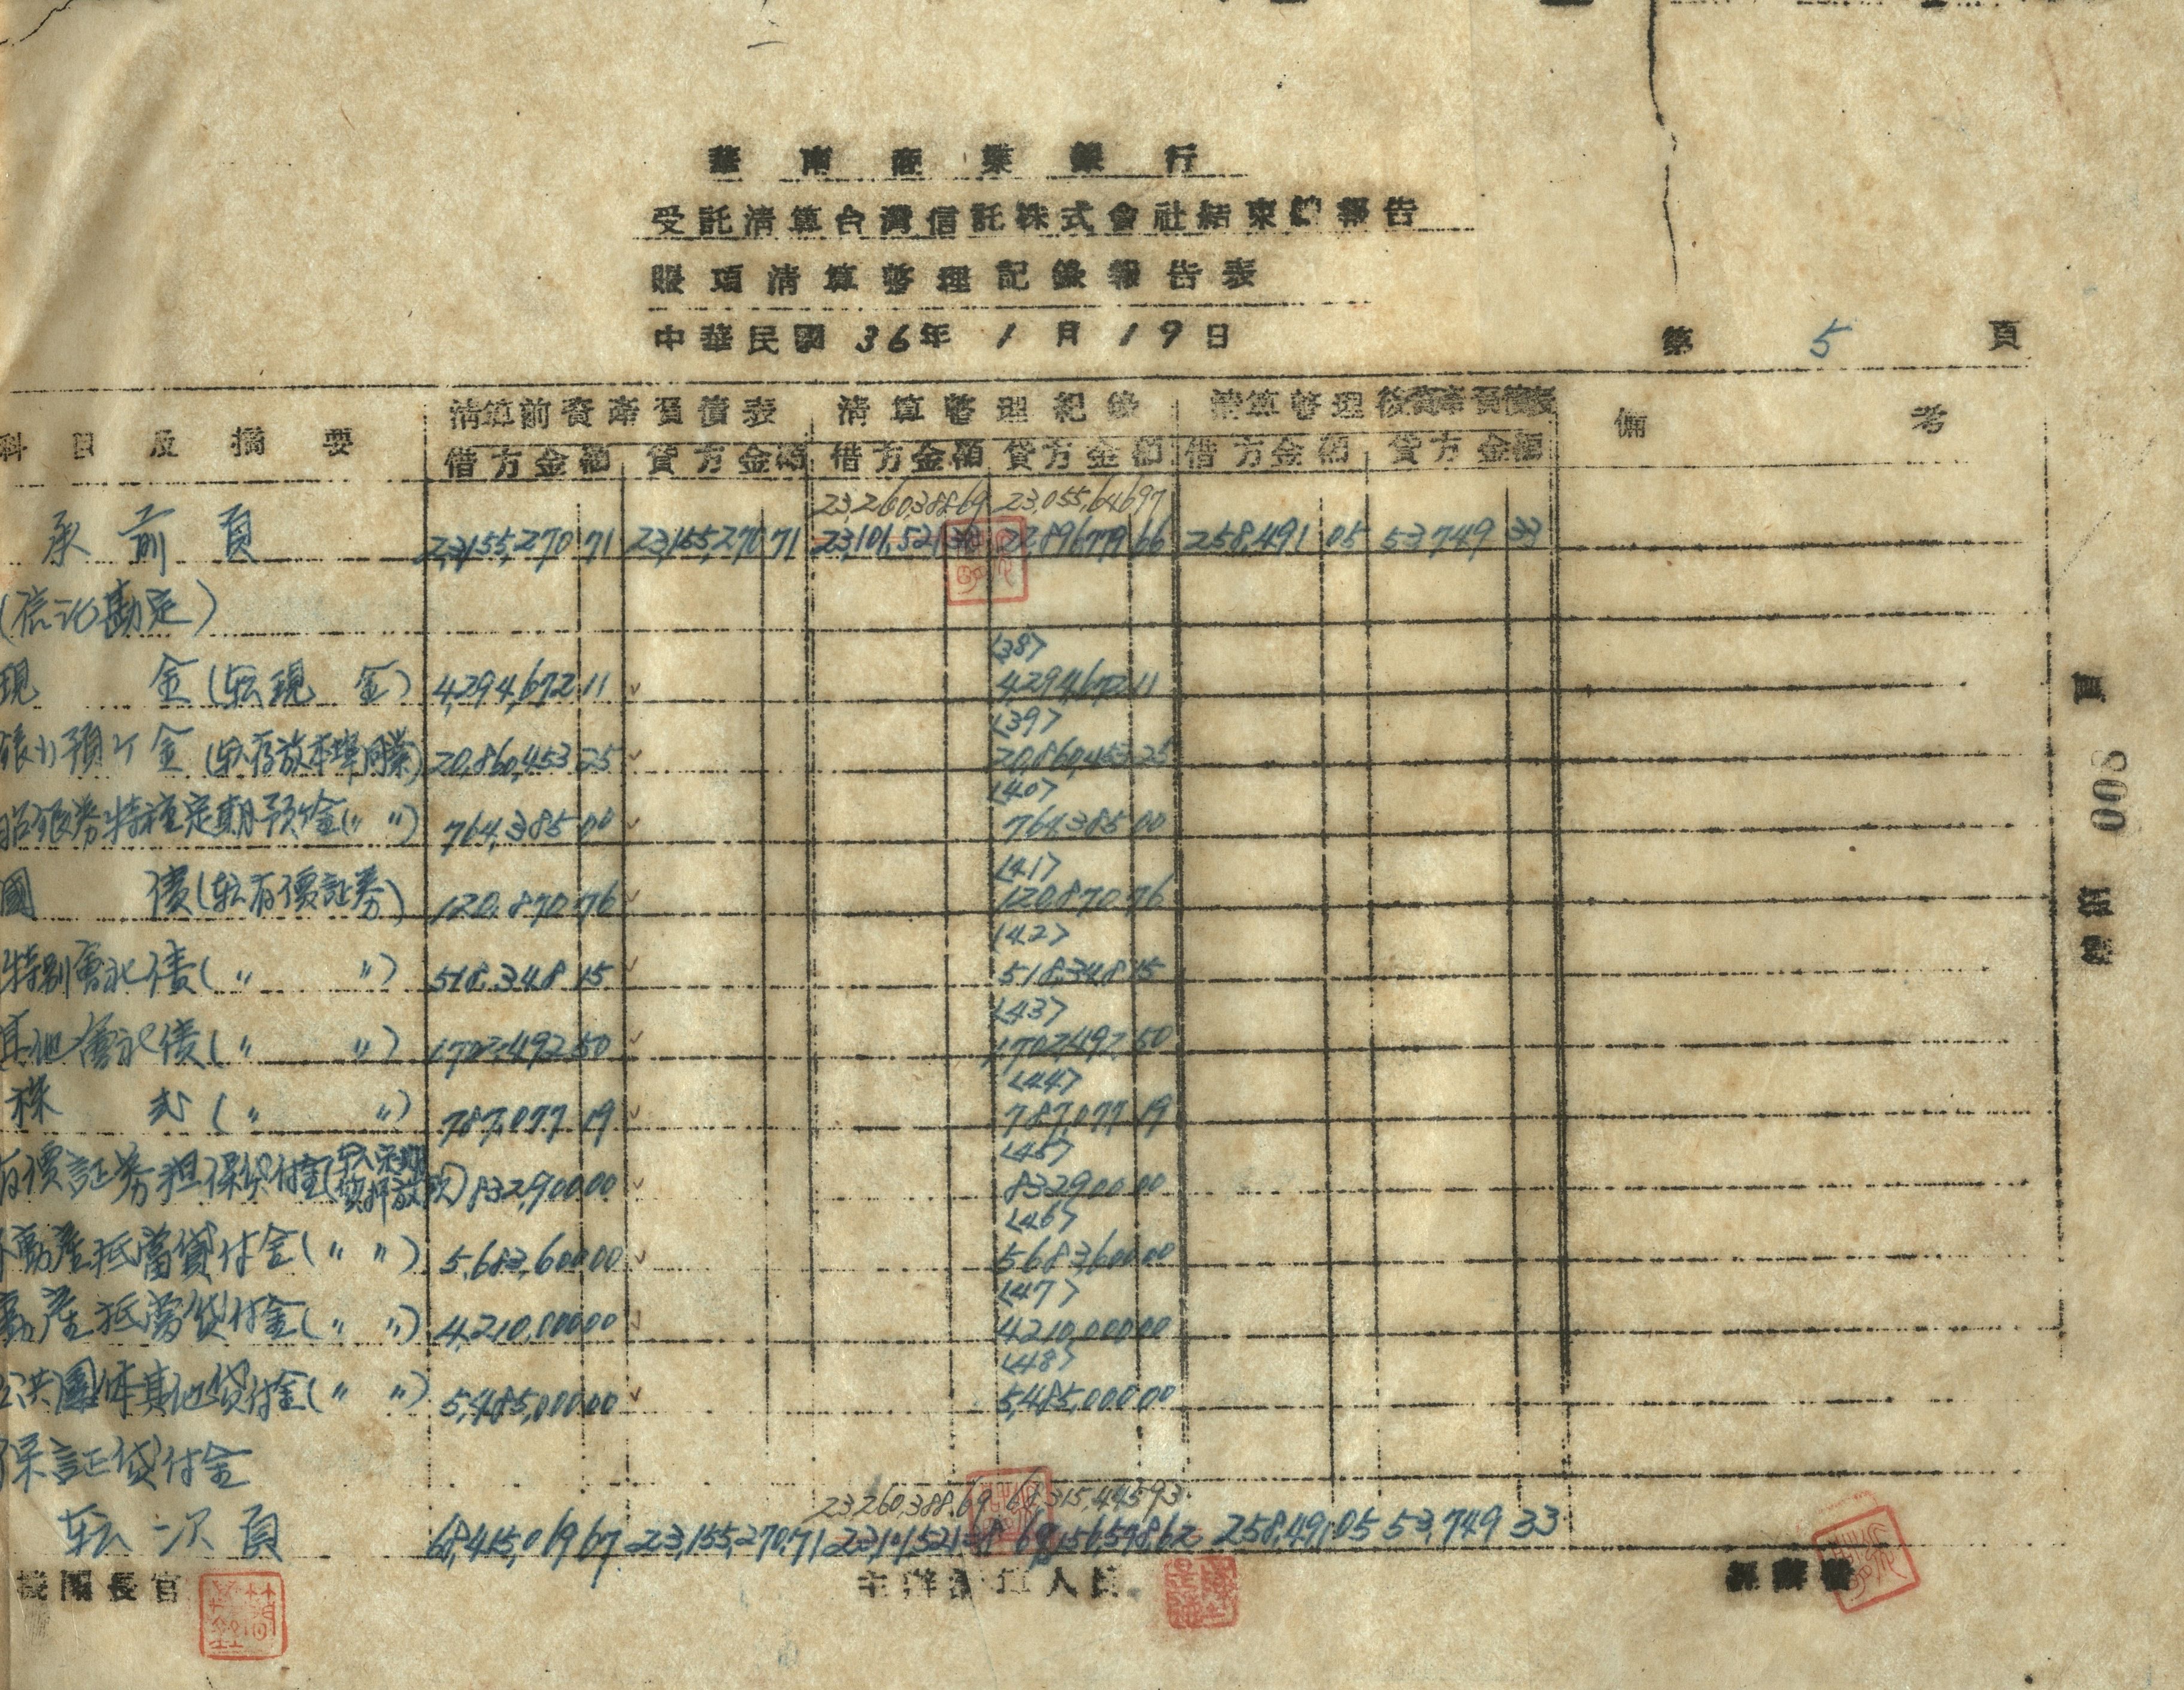 華南商業銀行
受託清算台灣信託株式會社結束報告
賬項清算整理記錄報告表
中華民國 36年 1月 19日
第 5 頁
科目及摘要 清算前資產負債表 清算整理紀錄 清算整理後資產負債表 備考
借方金額 貸方金額 借方金額 貸方金額 借方金額 貸方金額
23,260,388.69 23,055,646.97
承前頁 23,155,270 71 23,155,270 71 23,101,521 38 22,896,779 66 258,491 05 53,749 33
(信託勘定)
<38>
現金(転現金) 4,294,672 11 4,294,672 11
<39>
銀行預ケ金(転存放本埠同業) 20,860,453 25 20,860,453 25
<40>
銀券特種定期預ケ金(〃 〃) 764,385 00 764,385 00
<41>
國債(転有價証券) 120,870 76 120,870 76
<42>
特別會社債(〃 〃) 518,348 15 518,348 15
<43>
其他會社債(〃 〃) 1,702,492 50 1,702,492 50
<44>
株式(〃 〃) 787,077 19 787,077 19
<45>
有價証券担保貸付金 832,900 00 832,900 00
<46>
不動產抵當貸付金(〃 〃) 5,683,600 00 5,683,600 00
<47>
動產抵當貸付金(〃 〃) 4,210,000 00 4,210,000 00
<48>
公共團体其他貸付金(〃 〃) 5,485,000 00 5,485,000 00
保証貸付金
23,260,388.69 68,315,445 93
転次頁 68,415,069 67 23,155,270 71 23,101,521 38 68,156,578 62 258,491 05 53,749 33
機關長官 主辦清算人員 經辦員
008
頁